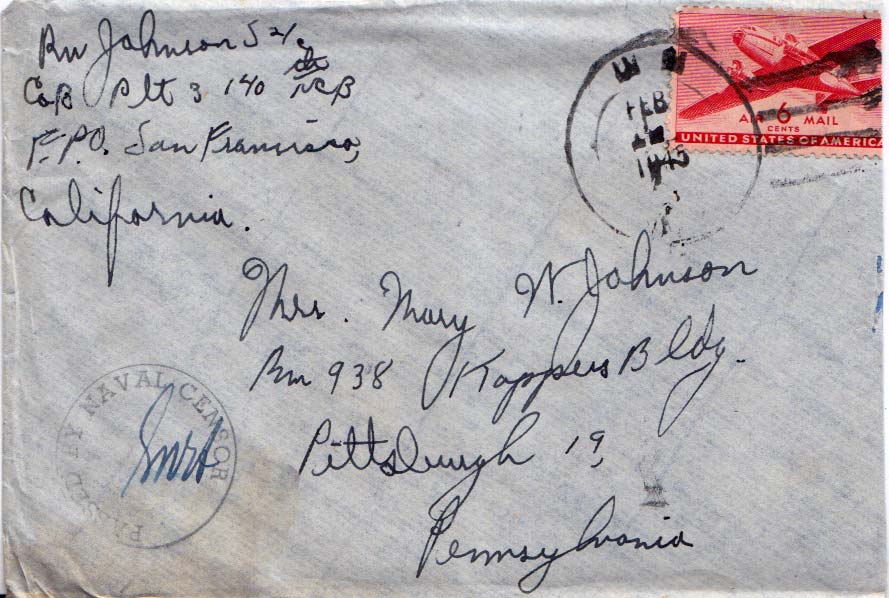 RW Johnson S 2/c
Co B Plt 3 140th NCB
F.P.O. San Francisco,
California.
FEB
1945
AIR 6 MAIL
CENTS
UNITED STATES OF AMERICA
Mrs. Mary W. Johnson
Rm 938 Koppers Bldg.
Pittsburgh 19,
Pennsylvania
PASSED BY NAVAL CENSOR